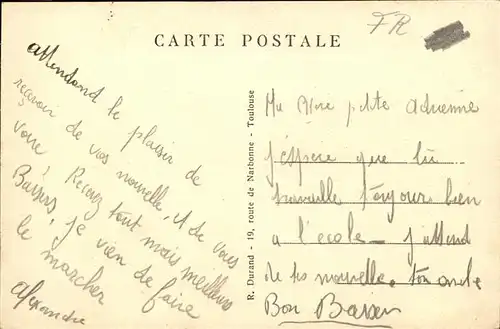 FR
CARTE POSTALE
attendant le plaisir de
recevoir de vos nouvelle, et de vous
voire, Recevez tout mais meilleurs
Baisers, je vien de faire
le marcher
Alexandre
R. Durand - 19, route de Narbonne - Toulouse
Ma petite adrienne
j'éspere que tu
travaille toujours bien
a l'école - j'attend
de tes nouvelle. ton oncle
Bon Baiser